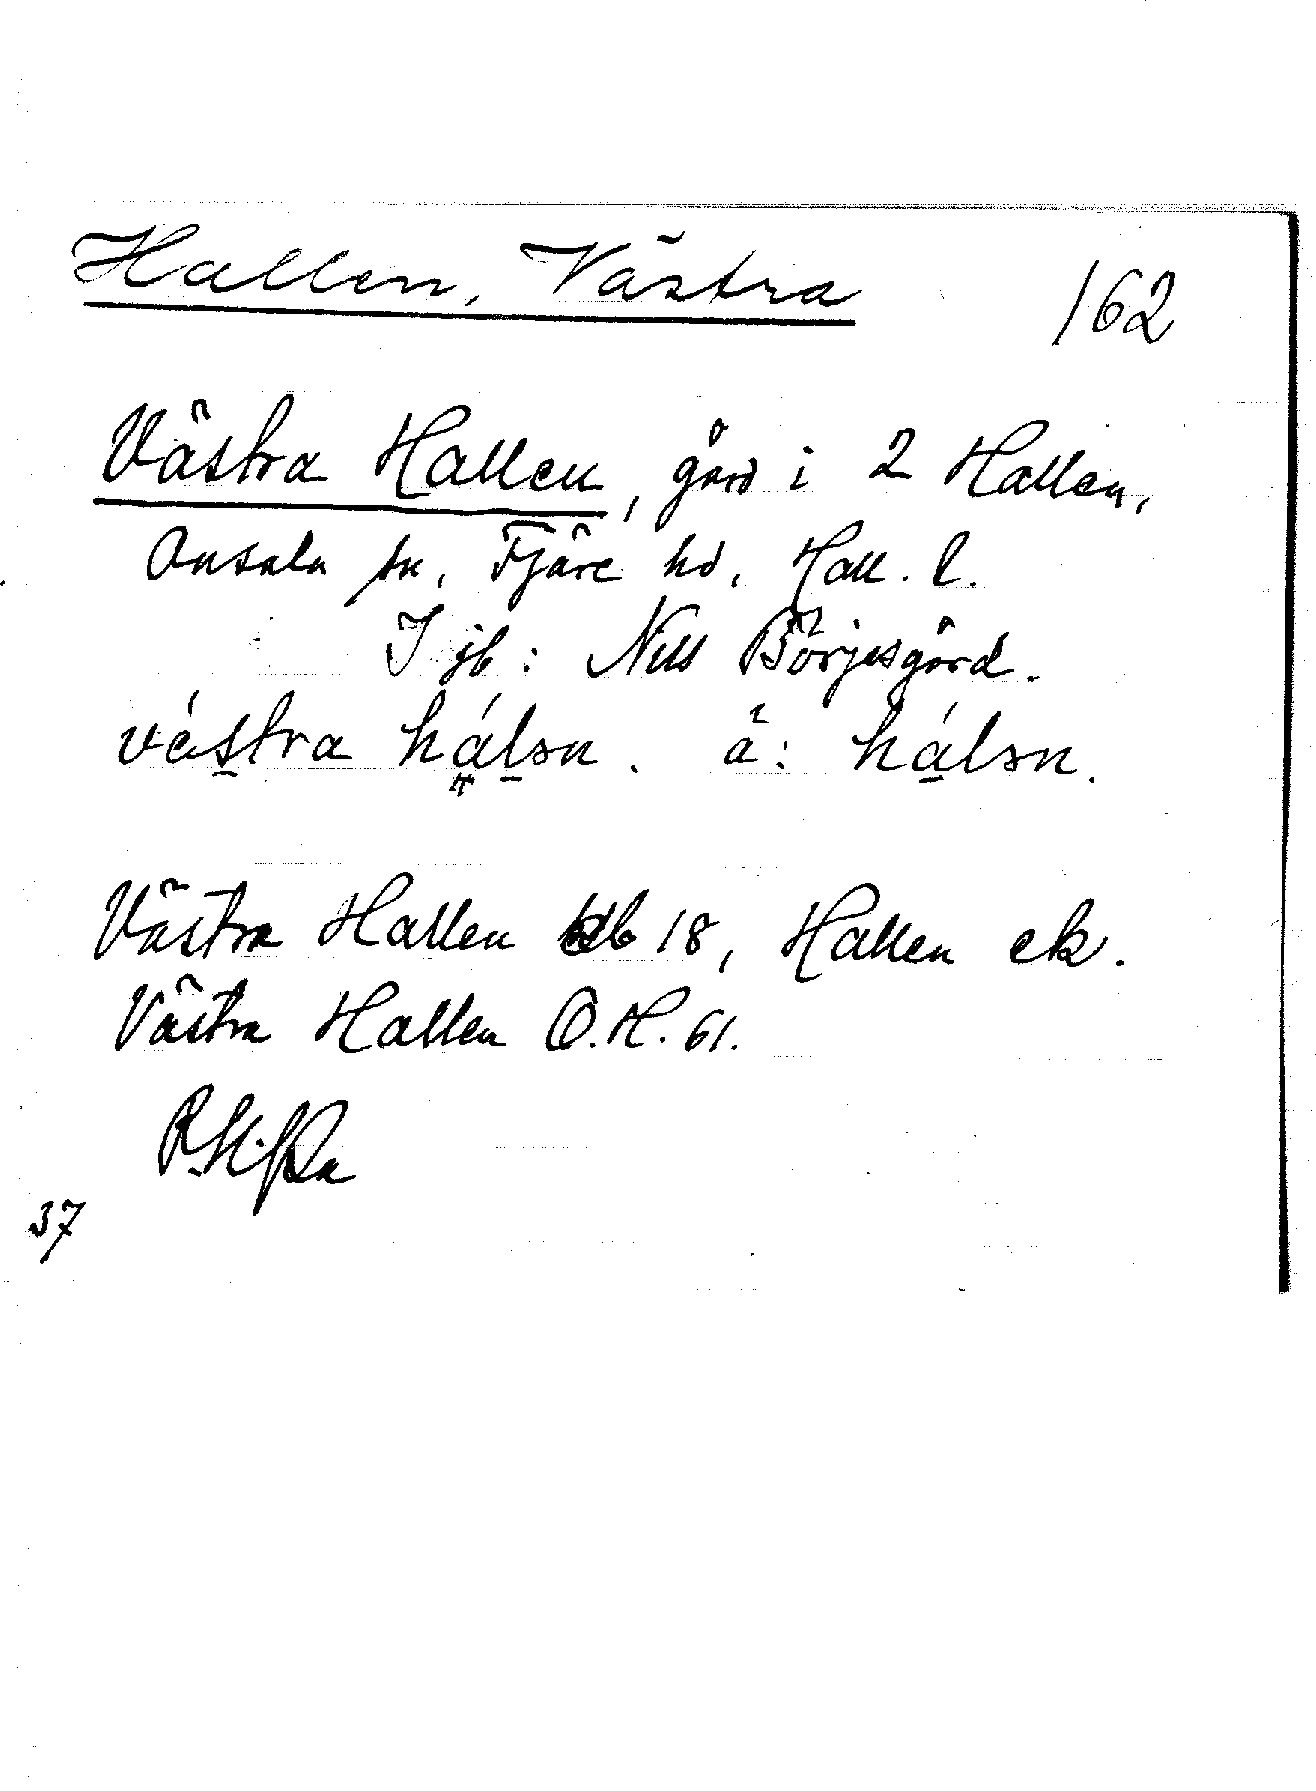 Hallen, Västra
162
Västra Hallen, gård i 2 Hallen,
Onsala sn, Fjäre hd, Hall. l.
I jb: Nils Börjesgård.
västra halən. ä: halən.
Västra Hallen Hdb 18, Hallen ek.
Västra Hallen O.H. 61.
37